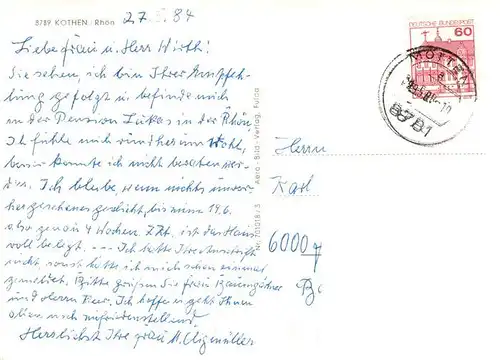 8789 KOTHEN / Rhön
27.5.84
Liebe Frau u. Herr Wirth!
Sie sehen, ich bin Ihrer Empfeh-
lung gefolgt u. befinde mich
in der Pension Lukas in der Rhön.
Ich fühle mich rundherum wohl,
besser konnte ich nicht beraten wer-
den. Ich bleibe, wenn nichts unvor-
hergesehenes geschieht, bis zum 19.6.
also genau 4 Wochen. Z.Zt. ist das Haus
voll belegt. --- Ich hatte Ihre Anschrift
nicht sonst hätte ich mich schon einmal
gemeldet. Bitte grüßen Sie Frau Baumgärtner
und Herrn. Ich hoffe es geht Ihnen
allen noch zufriedenstellend.
Herzlichst Ihre Frau
Aero - Bild - Verlag, Fulda
Nr. 701018 / 3
DEUTSCHE BUNDESPOST
60
MOTTEN
8781
Herrn
Karl
6000